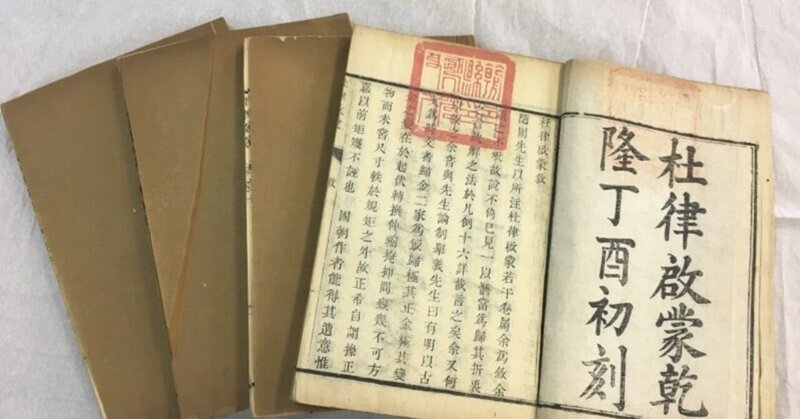 杜律啟蒙乾
隆丁酉初刻
杜律啟蒙敘
園先生以所注杜律啟蒙若干卷屬余為敘余
故說不倚己見一以諦當為歸其折衷
解之法於凡例十六詳哉言之矣余又何
之余嘗與先生論制舉義先生曰有明以古
文為時文者歸金二家為最歸極其正金極其變
之變在於起伏轉換伸縮掩抑間幾幾不可方
物而未嘗尺寸軼於規矩之外故正希自謂操正
嘉以前矩矱不誣也 國朝作者能得其遺意惟